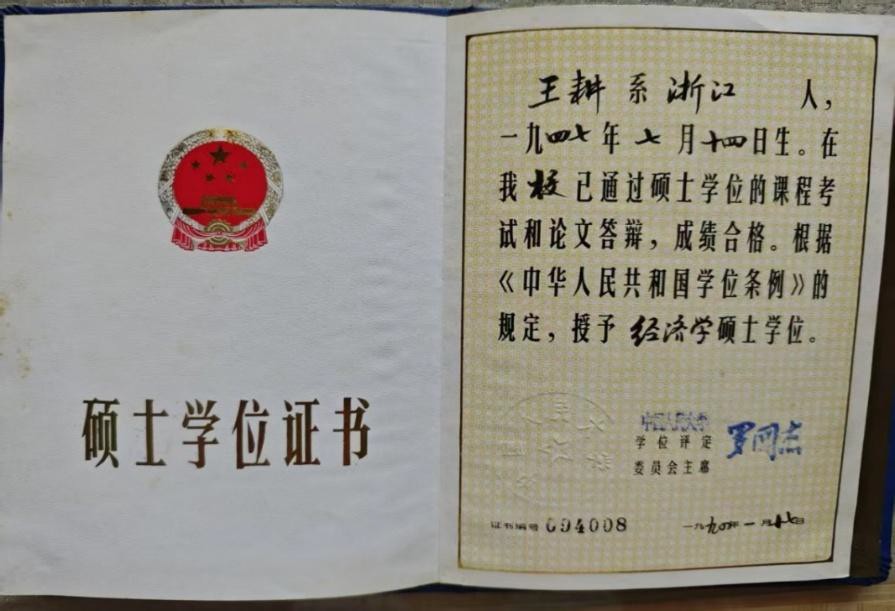 硕士学位证书
王耕系浙江 人，
一九四七年七月十四日生。在
我校已通过硕士学位的课程考
试和论文答辩，成绩合格。根据
《中华人民共和国学位条例》的
规定，授予经济学硕士学位。
中国人民大学
学位评定
委员会主席
证书编号 094008
一九九〇年一月十七日